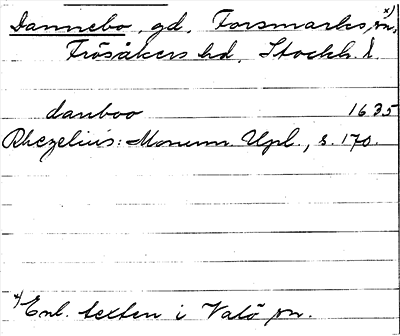 Dannebo, gd, Forsmarks x) sn,
Frösåkers hd, Stockh. l.
danboo 1635
Rhezelius: Monum. Upl., s. 170.
x) Enl. texten i Valö sn.